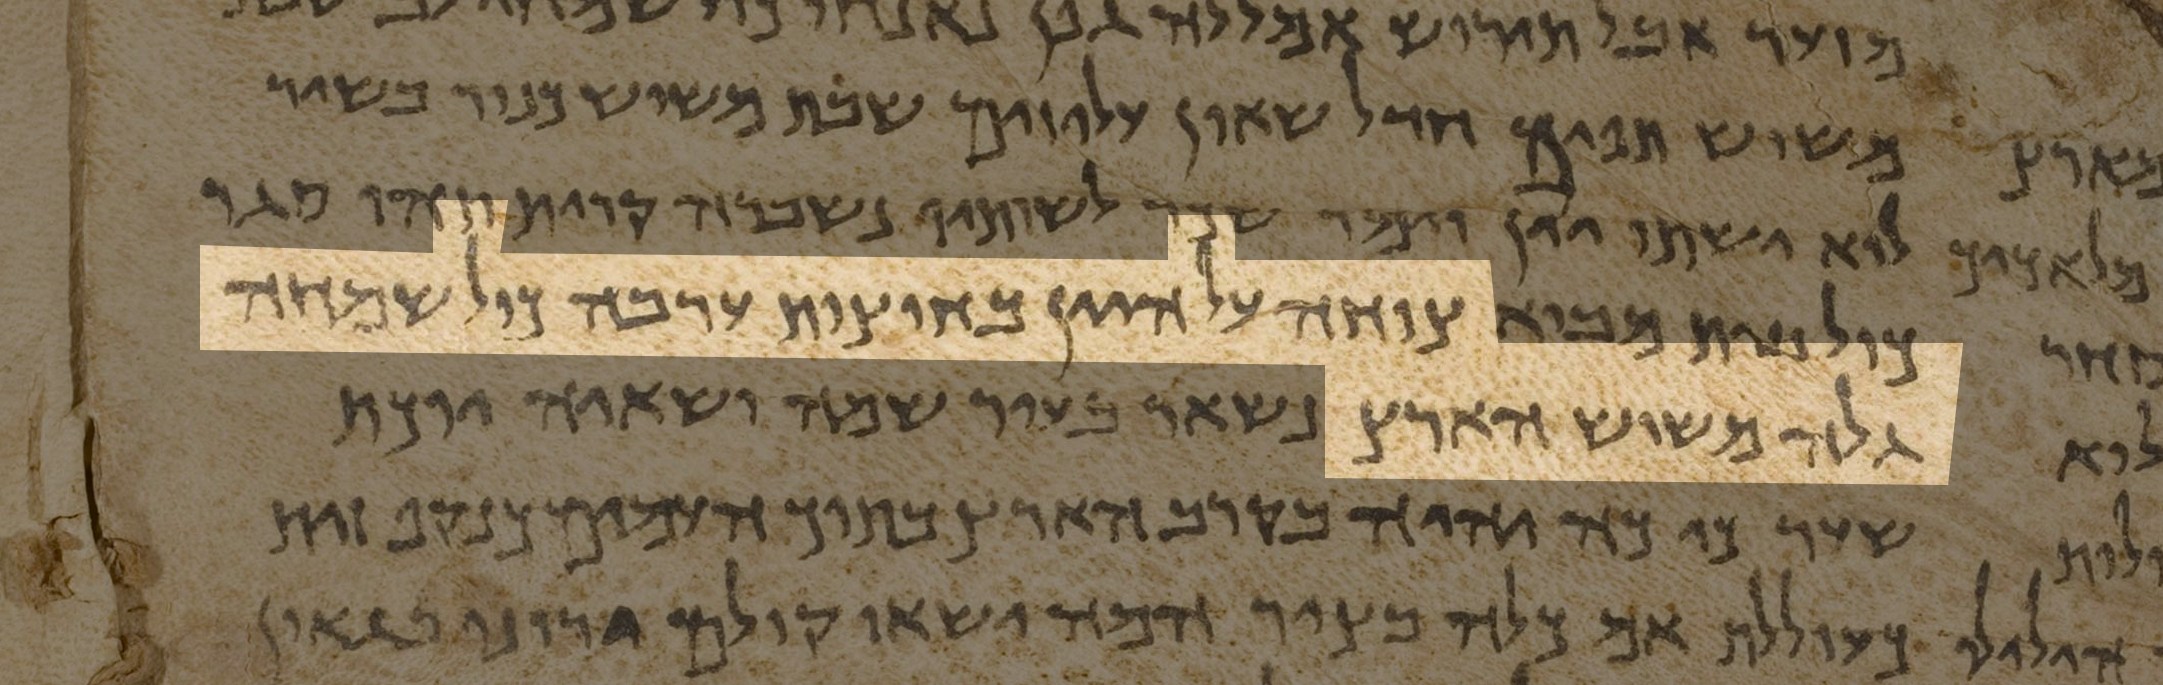 מזער אבל תירוש אמללה גפן נאנחו כול שמחי לב שבת
משוש תפים חדל שאון עליזים שבת משוש כנור בשיר
לוא ישתו יין וימר שכר לשותיו נשברה קרית תוהו סגר
כול בית מבוא צוחה על היין בחוצות ערבה כול שמחה
גלה משוש הארץ נשאר בעיר שמה ושאיה יוכת
שער כי כה יהיה בקרב הארץ בתוך העמים כנקף זית
כעוללת אם כלה בציר המה ישאו קולם ירונו בגאון